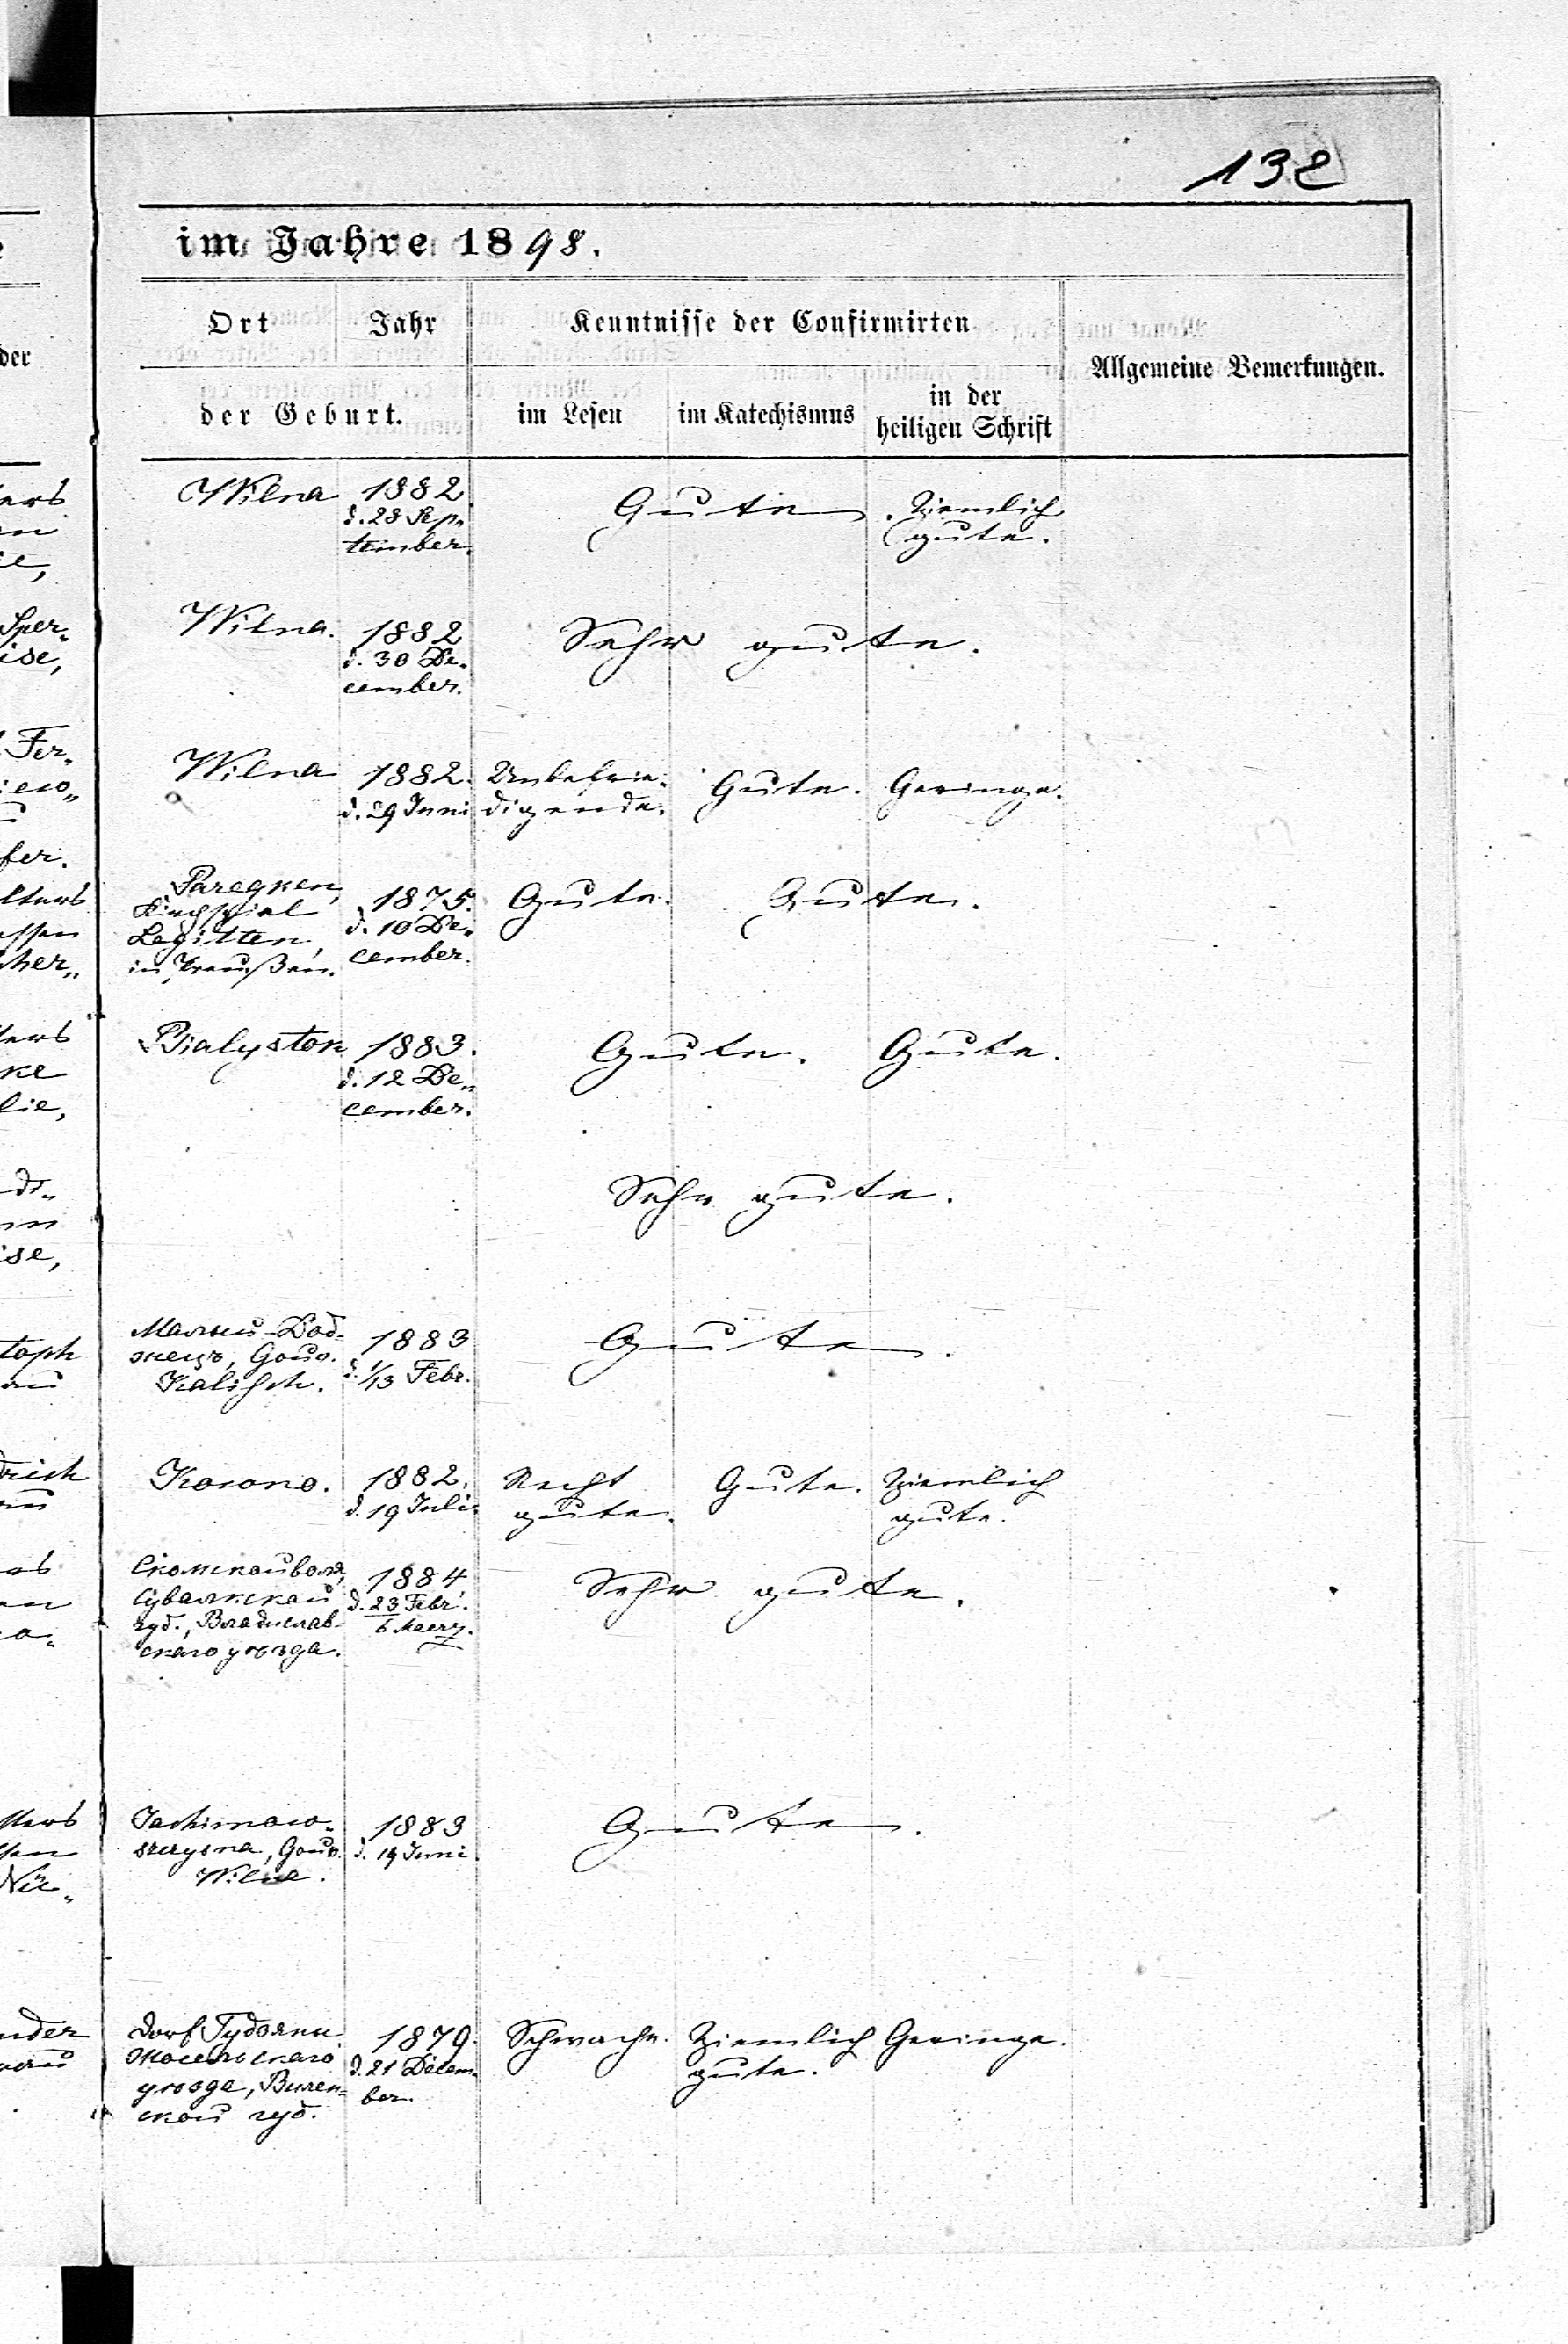 132
im Jahre 1898.
Ort
Jahr
der Geburt.
Kenntnisse der Confirmirten
im Lesen
im Katechismus
in der
heiligen Schrift
Allgemeine Bemerkungen.
Wilna
1882
d. 28 Sep„
tember.
Gute
Ziemlich
gute.
Wilna.
1882
d. 30 De„
cember.
Sehr gute.
Wilna
1882.
d. 29 Juni
Unbefrie„
digende.
Gute.
Geringe.
Paregken,
Kirchspiel
Legitten,
in Preußen.
1875.
d. 10 De„
cember.
Gute.
Gute.
Bialystok
1883.
d. 12 De„
cember.
Gute.
Gute.
Sehr gute.
Gouv.
Kalisch.
1883
d. 1/13 Febr.
Gute.
Kowno.
1882.
d. 19 Juli.
Recht
gute.
Gute.
Ziemlich
gute.
Сувалкской
губ., Владислав-
скаго уѣзда.
1884
d. 23 Febr.
6 Maerz.
Sehr gute.
Jachimow„
szczysna, Gouv.
Wilna.
1883
d. 14 Juni.
Gute.
Dorf
уѣзда, Вилен-
ской губ.
1879.
d. 21 Decem„
ber.
Schwache.
Ziemlich
gute.
Geringe.